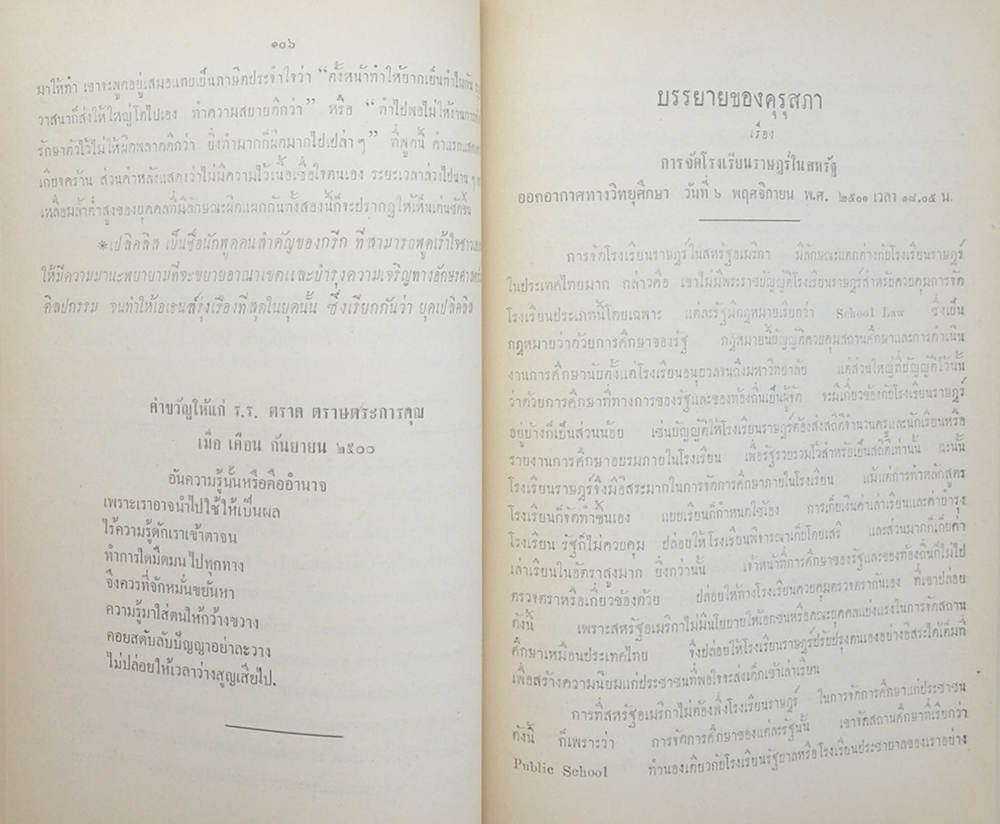 ๑๐๖
มาให้ทำ เขาจะพูดอยู่เสมอแทยเป็นภาษิตประจำใจว่า “ตั้งหน้าทำให้ยากเย็นทำไมกัน
วาสนาก็ส่งให้ใหญ่โตไปเอง ทำความสบายดีกว่า” หรือ “ทำไปพอไม่ให้งานการ
รักษาตัวไว้ไม่ให้ผิดพลาดดีกว่า ยิ่งทำมากก็ผิดมากไปเปล่า ๆ” ที่พูดนี้ คำแรกแสดง
เกียจคร้าน ส่วนคำหลังแสดงว่าไม่มีความไว้เนื้อเชื่อใจตนเอง ระยะเวลาล่วงไปนาน ๆ
เหลื่อมล้ำต่ำสูงของบุคคลที่มีลักษณะผิดแผกกันทั้งสองนี้ก็จะปรากฏให้เห็นเด่นชัดขึ้น
*เปลิคลิส เป็นชื่อนักพูดคนสำคัญของกรีก ที่สามารถพูดเร้าใจชาว
ให้มีความมานะพยายามที่จะขยายอาณาเขตและบำรุงความเจริญทางอักษรศาสตร์
ศิลปกรรม จนทำให้เอเธนส์รุ่งเรืองที่สุดในยุคนั้น ซึ่งเรียกกันว่า ยุคเปลิคลิส
คำขวัญให้แก่ ร.ร. ตราด ตราษตระการคุณ
เมื่อ เดือน กันยายน ๒๕๐๐
อันความรู้นั้นหรือคืออำนาจ
เพราะเราอาจนำไปใช้ให้เป็นผล
ไร้ความรู้ดักเราเข้าตาจน
ทำการใดมืดมนไปทุกทาง
จึงควรที่จักหมั่นขยันหา
ความรู้มาใส่ตนให้กว้างขวาง
คอยสดับลับปัญญาอย่าละวาง
ไม่ปล่อยให้เวลาว่างสูญเสียไป.
บรรยายของคุรุสภา
เรื่อง
การจัดโรงเรียนราษฎร์ในสหรัฐ
ออกอากาศทางวิทยุศึกษา วันที่ ๖ พฤศจิกายน พ.ศ. ๒๕๐๑ เวลา ๑๘.๐๕ น.
การจัดโรงเรียนราษฎร์ในสหรัฐอเมริกา มีลักษณะแตกต่างกับโรงเรียนราษฎร์
ในประเทศไทยมาก กล่าวคือ เขาไม่มีพระราชบัญญัติโรงเรียนราษฎร์สำหรับควบคุมการจัด
โรงเรียนประเภทนี้โดยเฉพาะ แต่ละรัฐมีกฎหมายเรียกว่า School Law ซึ่งเป็น
กฎหมายว่าด้วยการศึกษาของรัฐ กฎหมายนี้บัญญัติควบคุมสถานศึกษาและการดำเนิน
งานการศึกษานับตั้งแต่โรงเรียนอนุบาลจนถึงมหาวิทยาลัย แต่ส่วนใหญ่ที่บัญญัติไว้นั้น
ว่าด้วยการศึกษาที่ทางการของรัฐและของท้องถิ่นเป็นผู้จัด จะมีเกี่ยวข้องกับโรงเรียนราษฎร์
อยู่บ้างก็เป็นส่วนน้อย เช่นบัญญัติให้โรงเรียนราษฎร์ต้องส่งสถิติจำนวนครูและนักเรียนหรือ
รายงานการศึกษาอบรมภายในโรงเรียน เพื่อรัฐรวบรวมไว้สำหรับเป็นสถิติเท่านั้น ฉะนั้น
โรงเรียนราษฎร์จึงมีอิสระมากในการจัดการศึกษาภายในโรงเรียน แม้แต่การทำหลักสูตร
โรงเรียนก็จัดทำขึ้นเอง แบบเรียนก็กำหนดใช้เอง การเก็บเงินค่าเล่าเรียนและค่าบำรุง
โรงเรียน รัฐก็ไม่ควบคุม ปล่อยให้โรงเรียนพิจารณาเก็บโดยเสรี และส่วนมากก็เก็บค่า
เล่าเรียนในอัตราสูงมาก ยิ่งกว่านั้น เจ้าหน้าที่การศึกษาของรัฐและของท้องถิ่นก็ไม่ไป
ตรวจตราหรือเกี่ยวข้องด้วย ปล่อยให้ทางโรงเรียนควบคุมตรวจตรากันเอง ที่เขาปล่อย
ดังนี้ เพราะสหรัฐอเมริกาไม่มีนโยบายให้เอกชนหรือคณะบุคคลแบ่งแรงในการจัดสถาน
ศึกษาเหมือนประเทศไทย จึงปล่อยให้โรงเรียนราษฎร์ปรับปรุงตนเองอย่างอิสระได้เต็มที่
เพื่อสร้างความนิยมแก่ประชาชนที่พอใจจะส่งเด็กเข้าเล่าเรียน
การที่สหรัฐอเมริกาไม่ต้องพึ่งโรงเรียนราษฎร์ ในการจัดการศึกษาแก่ประชาชน
ดังนี้ ก็เพราะว่า การจัดการศึกษาของแต่ละรัฐนั้น เขาจัดสถานศึกษาที่เรียกว่า
Public School ทำนองเดียวกับโรงเรียนรัฐบาลหรือโรงเรียนประชาบาลของเราอย่าง